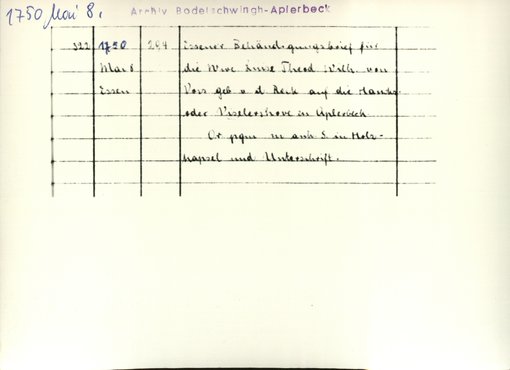 1750 Mai 8.
Archiv Bodelschwingh-Aplerbeck
322 1750 294 Essener Behändigungsbrief für
Mai 8 die Wwe Theod Wilh. von
Essen Voss geb v. d. Reck auf die
oder in Aplerbeck
Or pgm m anh S. in Holz-
kapsel und Unterschrift.